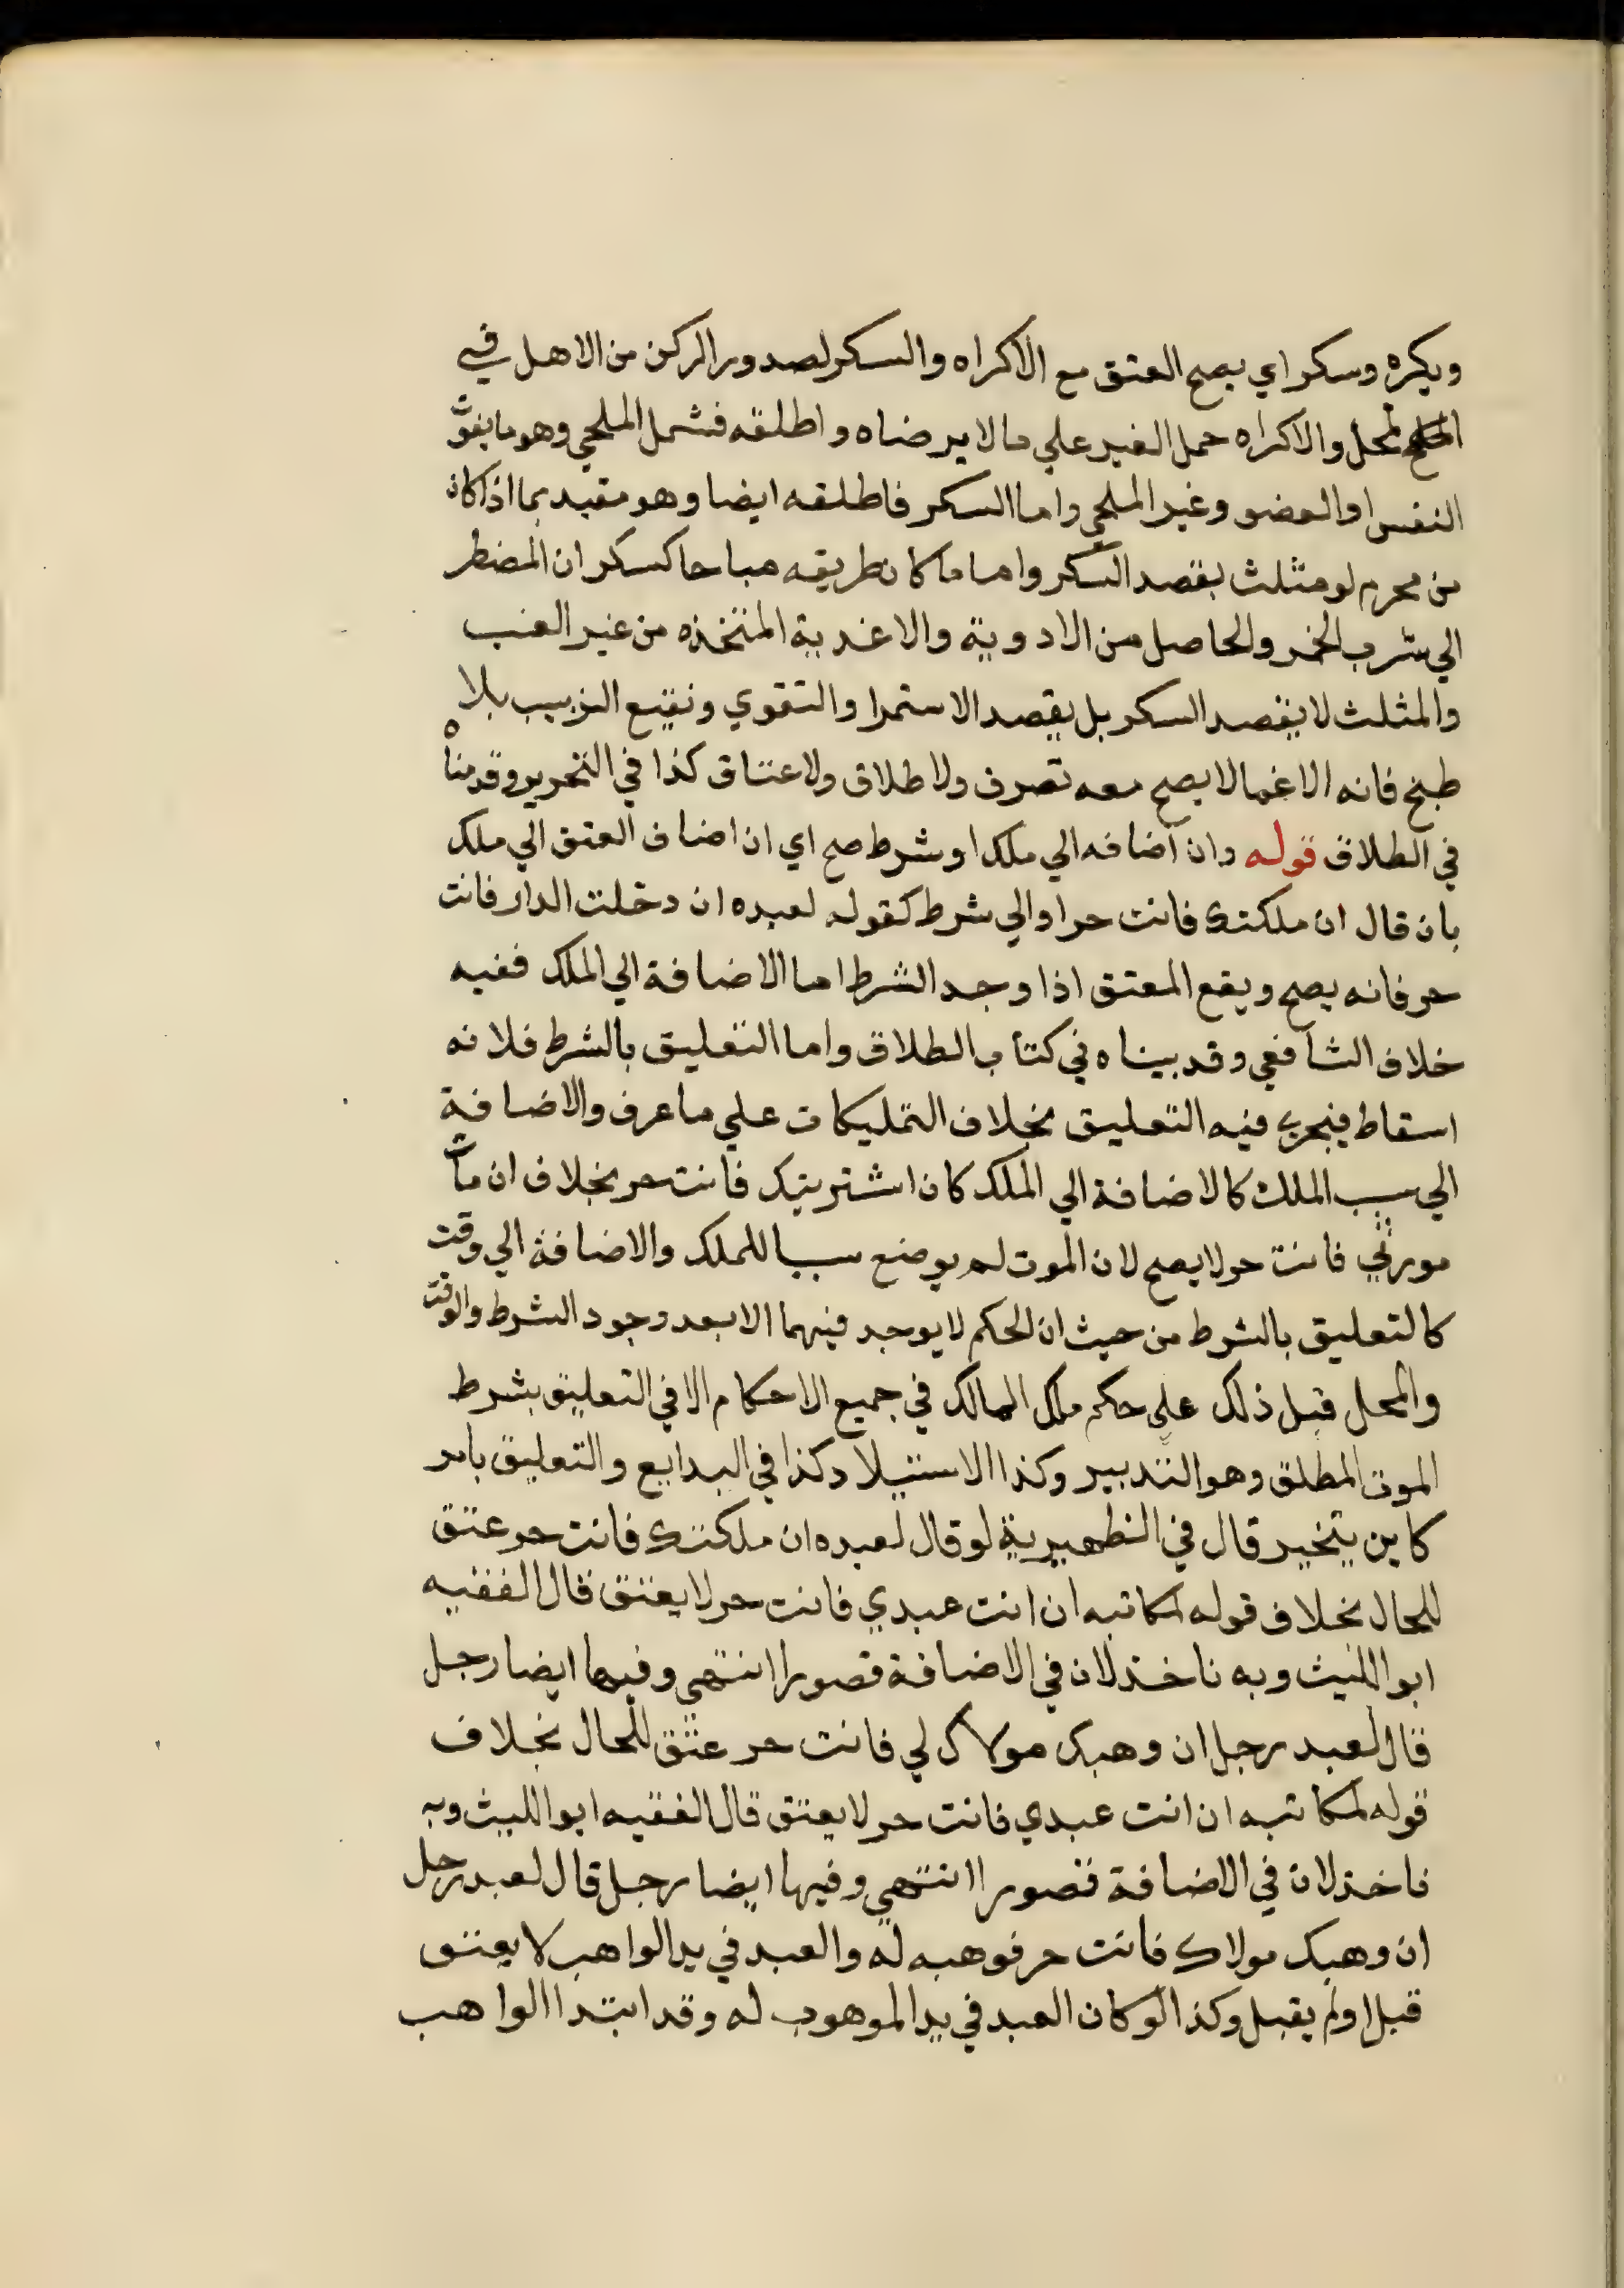 ويكره وسكر اي يصح العتق مع الاكراه والسكر لصدور الركن من الاهل في
المحل والاكراه حمل الغير علي مالا يرضاه واطلقه فشمل الملجي وهو ما يفوت
النفس او العضو وغير الملجي واما السكر فاطلقه ايضا وهو مقيد بما اذا كان
من محرم او مثلث بقصد السكر واما ما كان طريقه مباحا كسكران المضطر
الي شرب الخمر والحاصل من الادوية والاغدية المتخذه من غير العنب
والمثلث لا بقصد السكر بل بقصد الاستمرا والتقوي ونقيع الزبيب بلا
طبخ فانه الاغما لا يصح معه تصرف ولا طلاق ولا عتاق كذا في التحرير وقدمناه
في الطلاق قوله وان اضافه الي ملك او شرط صح اي ان اضاف العتق الي ملك
بان قال ان ملكتك فانت حر او الي شرط كقوله لعبده ان دخلت الدار فانت
حر فانه يصح ويقع المعتق اذا وجد الشرط اما الاضافة الي الملك ففيه
خلاف الشافعي وقد بيناه في كتاب الطلاق واما التعليق بالشرط فلانه
اسقاط فيجري فيه التعليق بخلاف التمليكات علي ما عرف والاضافة
الي سبب الملك كالاضافة الي الملك كان اشتريتك فانت حر بخلاف ان مات
مورثي فانت حر لا يصح لان الموت لم يوضع سببا للملك والاضافة الي وقت
كالتعليق بالشرط من حيث ان الحكم لا يوجد فيهما الا بعد وجود الشرط والوقت
والمحل قبل ذلك علي حكم ملك المالك في جميع الاحكام الا في التعليق بشرط
الموت المطلق وهو التدبير وكذا الاستيلاد كذا في البدايع والتعليق بامر
كاين يتخير قال في الظهيرية لو قال لعبده ان ملكتك فانت حر عتق
للحال بخلاف قوله لمكاتبه ان انت عبدي فانت حر لا يعتق قال الفقيه
ابو الليث وبه ناخذ لان في الاضافة قصورا انتهي وفيها ايضا رجل
قال لعبد رجل ان وهبك مولاك لي فانت حر عتق للحال بخلاف
قوله لمكاتبه ان انت عبدي فانت حر لا يعتق قال الفقيه ابو الليث وبه
ناخذ لان في الاضافة قصورا انتهي وفيها ايضا رجل قال لعبد رجل
ان وهبك مولاك فانت حر فوهبه له والعبد في يد الواهب لا يعتق
قبل او لم يقبل وكذا لو كان العبد في يد الموهوب له وقد ابتدا الواهب